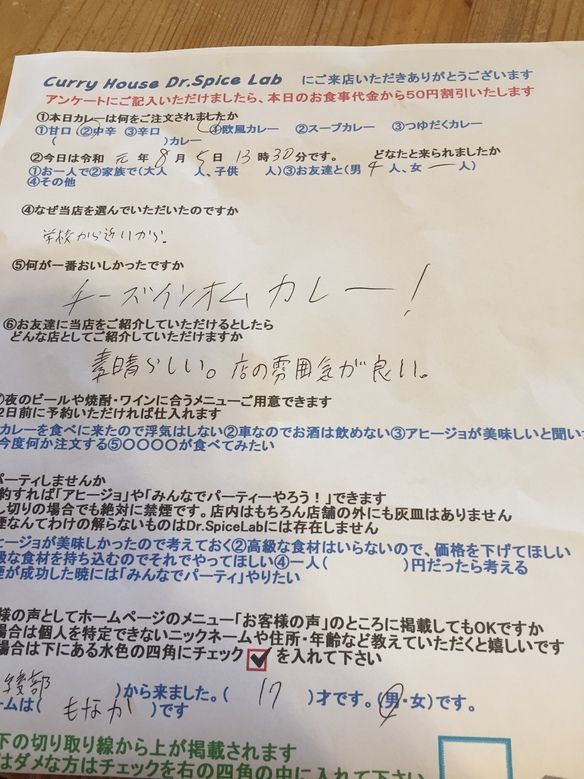 Curry House Dr.Spice Lab にご来店いただきありがとうございます
アンケートにご記入いただけましたら、本日のお食事代金から50円割引いたします
①本日カレーは何をご注文されましたか
①甘口 ②中辛 ③辛口 ①欧風カレー ②スープカレー ③つゆだくカレー
( )カレー
②今日は令和 元 年 8 月 5 日 13 時 30 分です。 どなたと来られましたか
①お一人で②ご家族で(大人 人、子供 人)③お友達と(男 4 人、女 ー 人)
④その他
④なぜ当店を選んでいただいたのですか
学校から近いから。
⑤何が一番おいしかったですか
チーズインオムカレー!
⑥お友達に当店をご紹介していただけるとしたら
どんな店としてご紹介していただけますか
素晴らしい。店の雰囲気が良い。
夜のビールや焼酎・ワインに合うメニューご用意できます
2日前に予約いただければ仕入れます
カレーを食べに来たので浮気はしない②車なのでお酒は飲めない③アヒージョが美味しいと聞い
今度何か注文する⑤○○○○が食べてみたい
パーティしませんか
約すれば「アヒージョ」や「みんなでパーティーやろう!」できます
し切りの場合でも絶対に禁煙です。店内はもちろん店舗の外にも灰皿はありません
煙なんてわけの解らないものはDr.SpiceLabには存在しません
ヒージョが美味しかったので考えておく②高級な食材はいらないので、価格を下げてほしい
級な食材を持ち込むのでそれでやってほしい④一人( )円だったら考える
煙が成功した暁には「みんなでパーティ」やりたい
様の声としてホームページのメニュー「お客様の声」のところに掲載してもOKですか
場合は個人を特定できないニックネームや住所・年齢など教えていただくと嬉しいです
場合は下にある水色の四角にチェック を入れて下さい
綾部 )から来ました。( 17 )才です。(男・女)です。
ームは( もなか )です
下の切り取り線から上が掲載されます
はダメな方はチェックを右の四角の中に入れて下さい